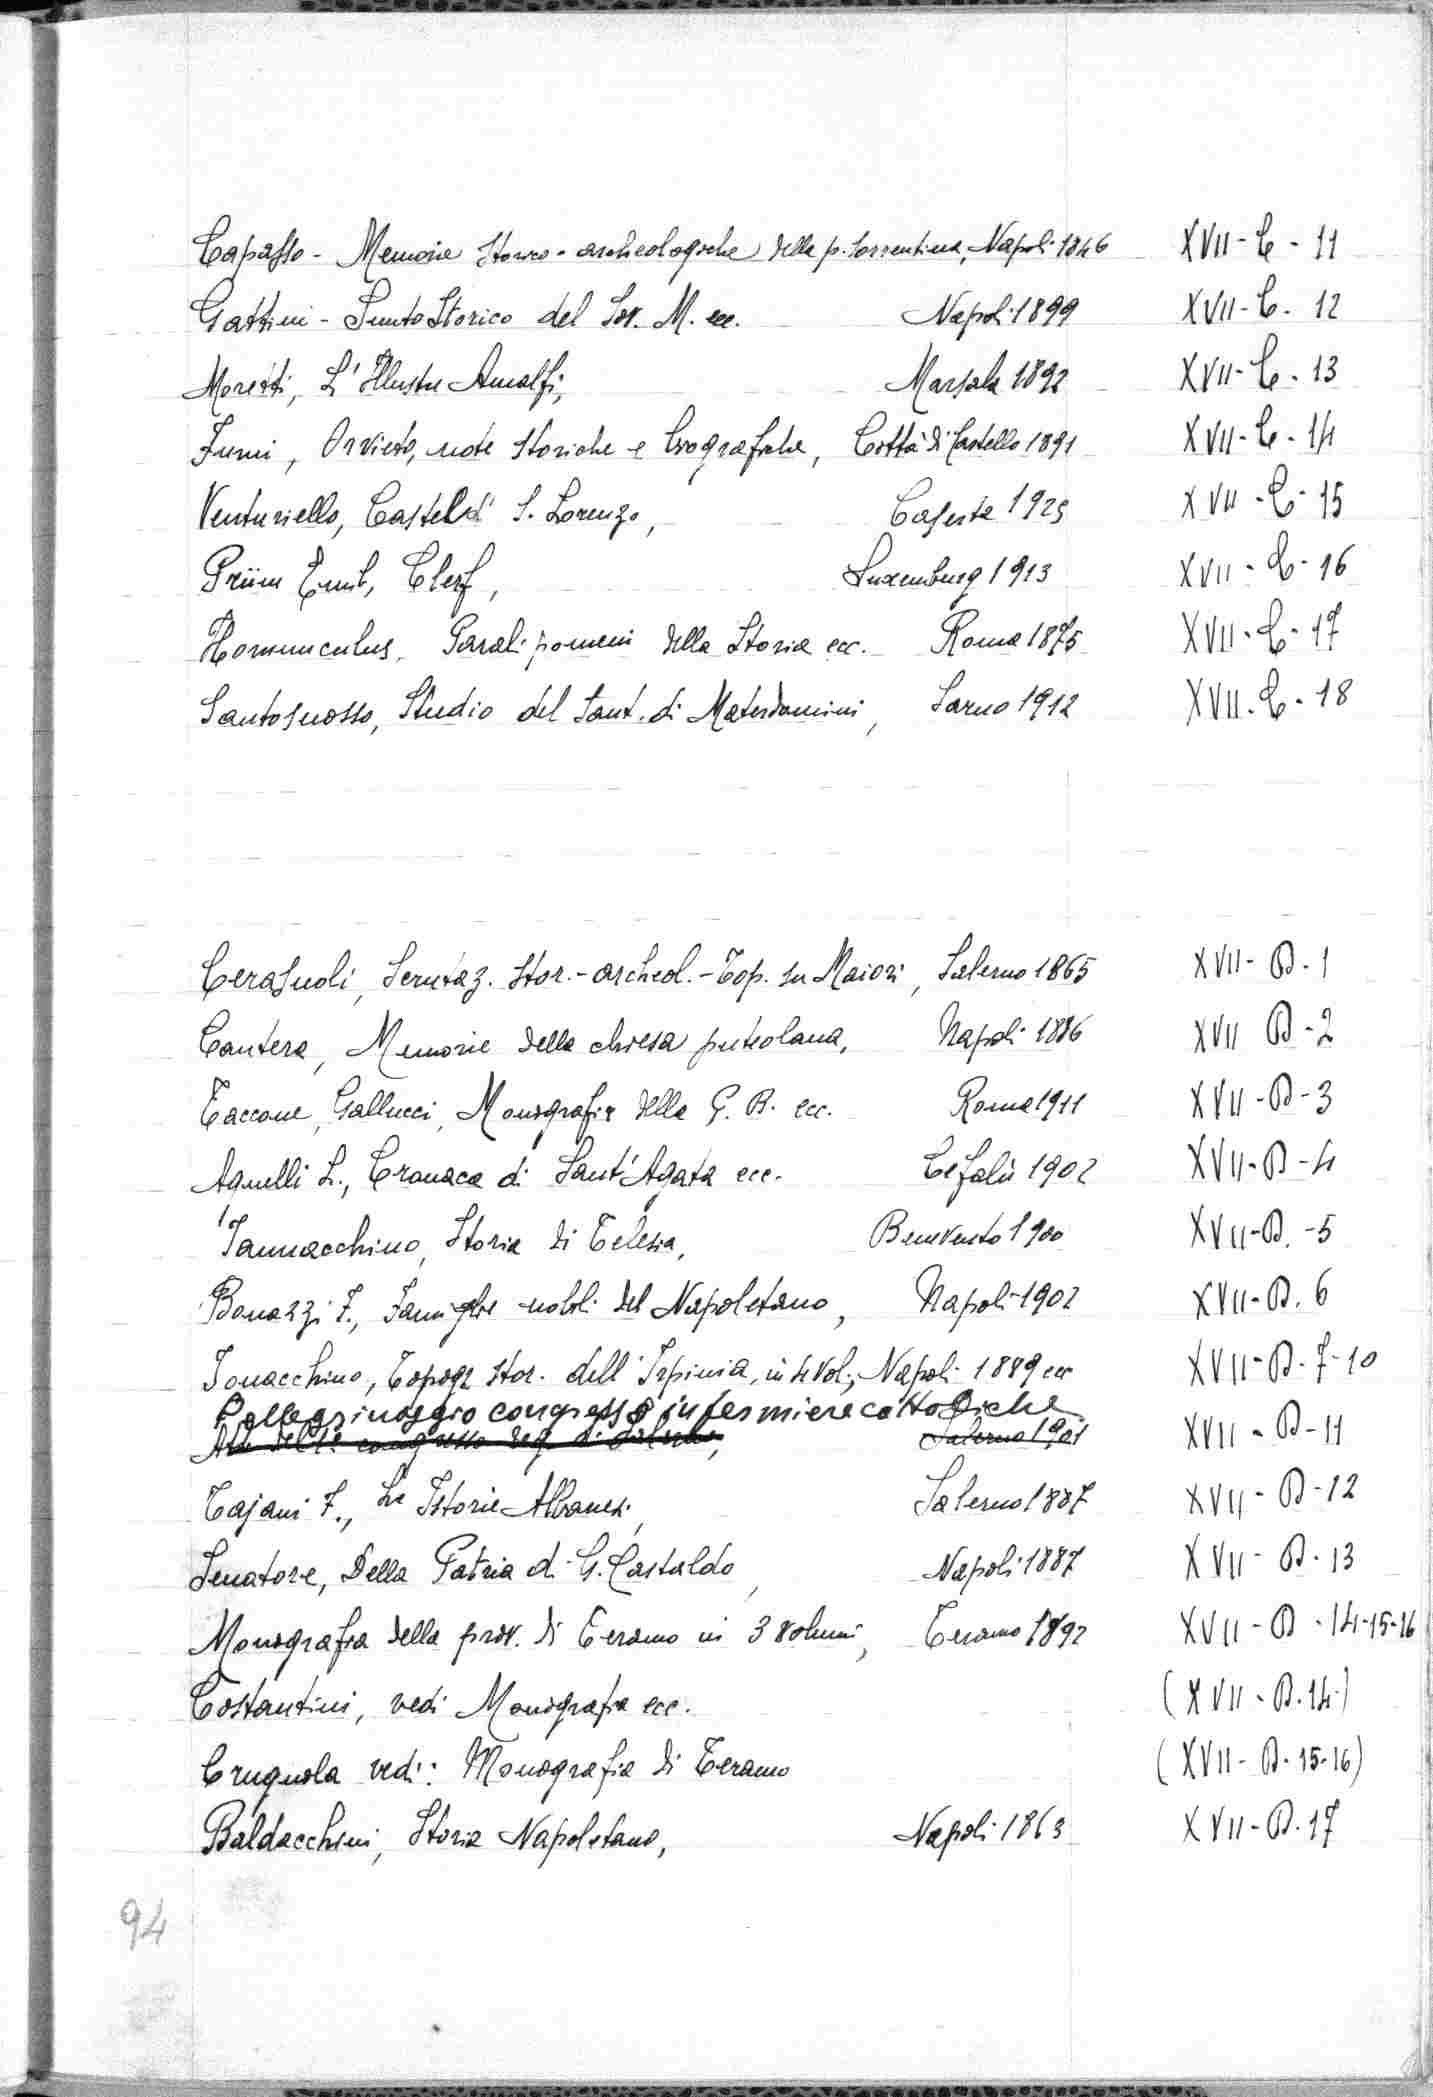 Capasso - Memorie Storico-archeologiche della p. Sorrentina, Napoli 1846 XVII-C-11
Gattini - Sunto Storico del Sov. M. ecc. Napoli 1899 XVII-C-12
Moretti, L'Illustre Amalfi, Marsala 1892 XVII-C-13
Fumi, Orvieto, note Storiche e biografiche, Città di Castello 1891 XVII-C-14
Venturiello, Castel di S. Lorenzo, Caserta 1925 XVII-C-15
Prüm Emil, Clerf, Luxemburg 1913 XVII-C-16
Homunculus, Paralipomeni della Storia ecc. Roma 1875 XVII-C-17
Santosuosso, Studio del Sant. di Materdomini, Sarno 1912 XVII-C-18
Cerasuoli, Scrutaz. Stor.-archeol.-Top. su Maiori, Salerno 1865 XVII-D-1
Cantera, Memorie della chiesa puteolana, Napoli 1886 XVII D-2
Taccone, Gallucci, Monografia della G. B. ecc. Roma 1911 XVII-D-3
Agnelli L., Cronaca di Sant'Agata ecc. Cefalù 1902 XVII-D-4
Iannacchino, Storia di Telesia, Benevento 1900 XVII-D.-5
Bonazzi F., Famiglie nobili del Napoletano, Napoli 1902 XVII-D.6
Ionacchino, Topogr. stor. dell'Irpinia, in 4 Vol., Napoli 1889 ecc XVII-D-7-10
Pellegrinaggio congresso infermiere cattoliche
Atti del 1° congresso reg. di Salerno, Salerno 1901 XVII-D-11
Tajani F., Le Istorie Albanesi, Salerno 1887 XVII-D-12
Senatore, Della Patria di G. Castaldo, Napoli 1887 XVII-D-13
Monografia della prov. di Teramo in 3 volumi, Teramo 1892 XVII-D-14-15-16
Costantini, vedi Monografia ecc. (XVII-D.14)
Crugnola vedi: Monografia di Teramo (XVII-D-15-16)
Baldacchini, Storia Napoletana, Napoli 1863 XVII-D.17
94